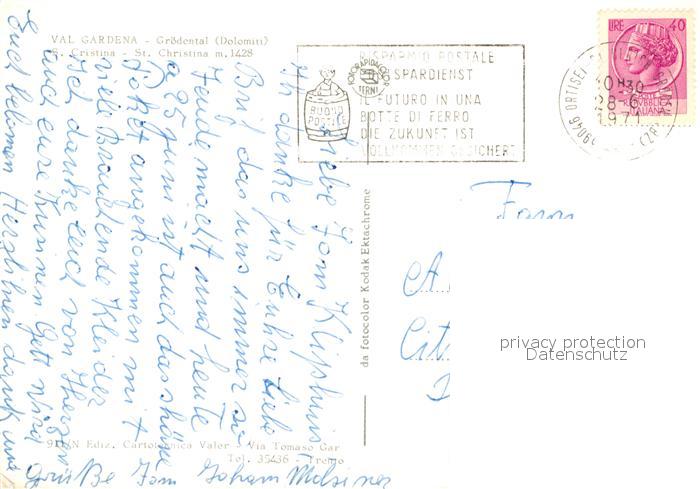 VAL GARDENA - Grödental (Dolomiti)
S. Cristina - St. Christina m. 1428
RISPARMIO POSTALE
SPARDIENST
IL FUTURO IN UNA
BOTTE DI FERRO
DIE ZUKUNFT IST
VOLLKOMMEN GESICHERT
BUONO
POSTALE
TERNI
LIRE 40
REPUBBLICA
ITALIANA
39046 ORTISEI
10H30
28-6
1971
(ZB)
Liebe Fam
Ich danke für Euhre Liebe
Brif das uns immer so
Feude macht und heute
a 25 juni ist auch das schöne
Paket angekommen mit
viele Brauchende Kleider
Ich danke Euch von Herzen
auch eure Gott wird
Euch belonen Herzlihen dank und
Grüße Fam Johann
da fotocolor Kodak Ektachrome
Ediz. Cartotecnica Valer - Via Tomaso Gar
Tel. 35436 - Trento
Fam
A.
Cit
privacy protection
Datenschutz